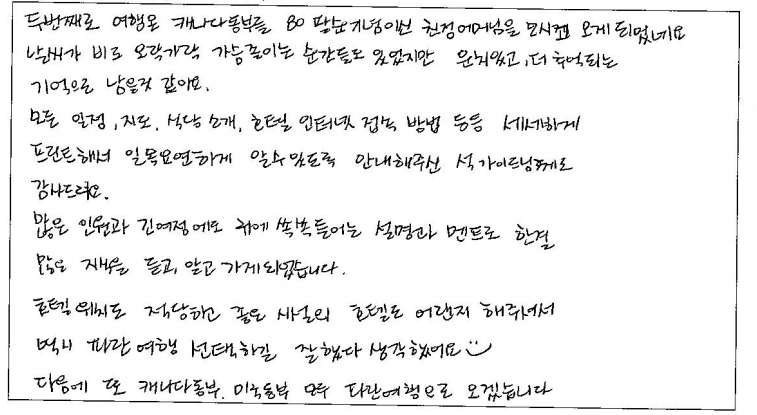 두번째로 여행온 캐나다동부를 80 팔순기념이신 친정어머님을 모시고 오게 되었네요
날씨가 비로 오락가락 가슴졸이는 순간들도 있었지만 운치있고, 더 추억되는
기억으로 남을것 같아요.
모든 일정, 지도, 식당 소개, 호텔 인터넷 접속 방법 등등 세세하게
프린트해서 일목요연하게 알수있도록 안내해주신 석가이드님께도
감사드려요.
많은 인원과 긴여정에도 귀에 쏙쏙들어오는 설명과 멘트로 한결
많은 지식을 듣고, 알고 가게되었습니다.
호텔 위치도 적당하고 좋은 시설의 호텔로 어랜지 해주셔서
역시 파란여행 선택하길 잘했다 생각했어요
다음에 또 캐나다동부, 미국동부 모두 파란여행으로 오겠습니다